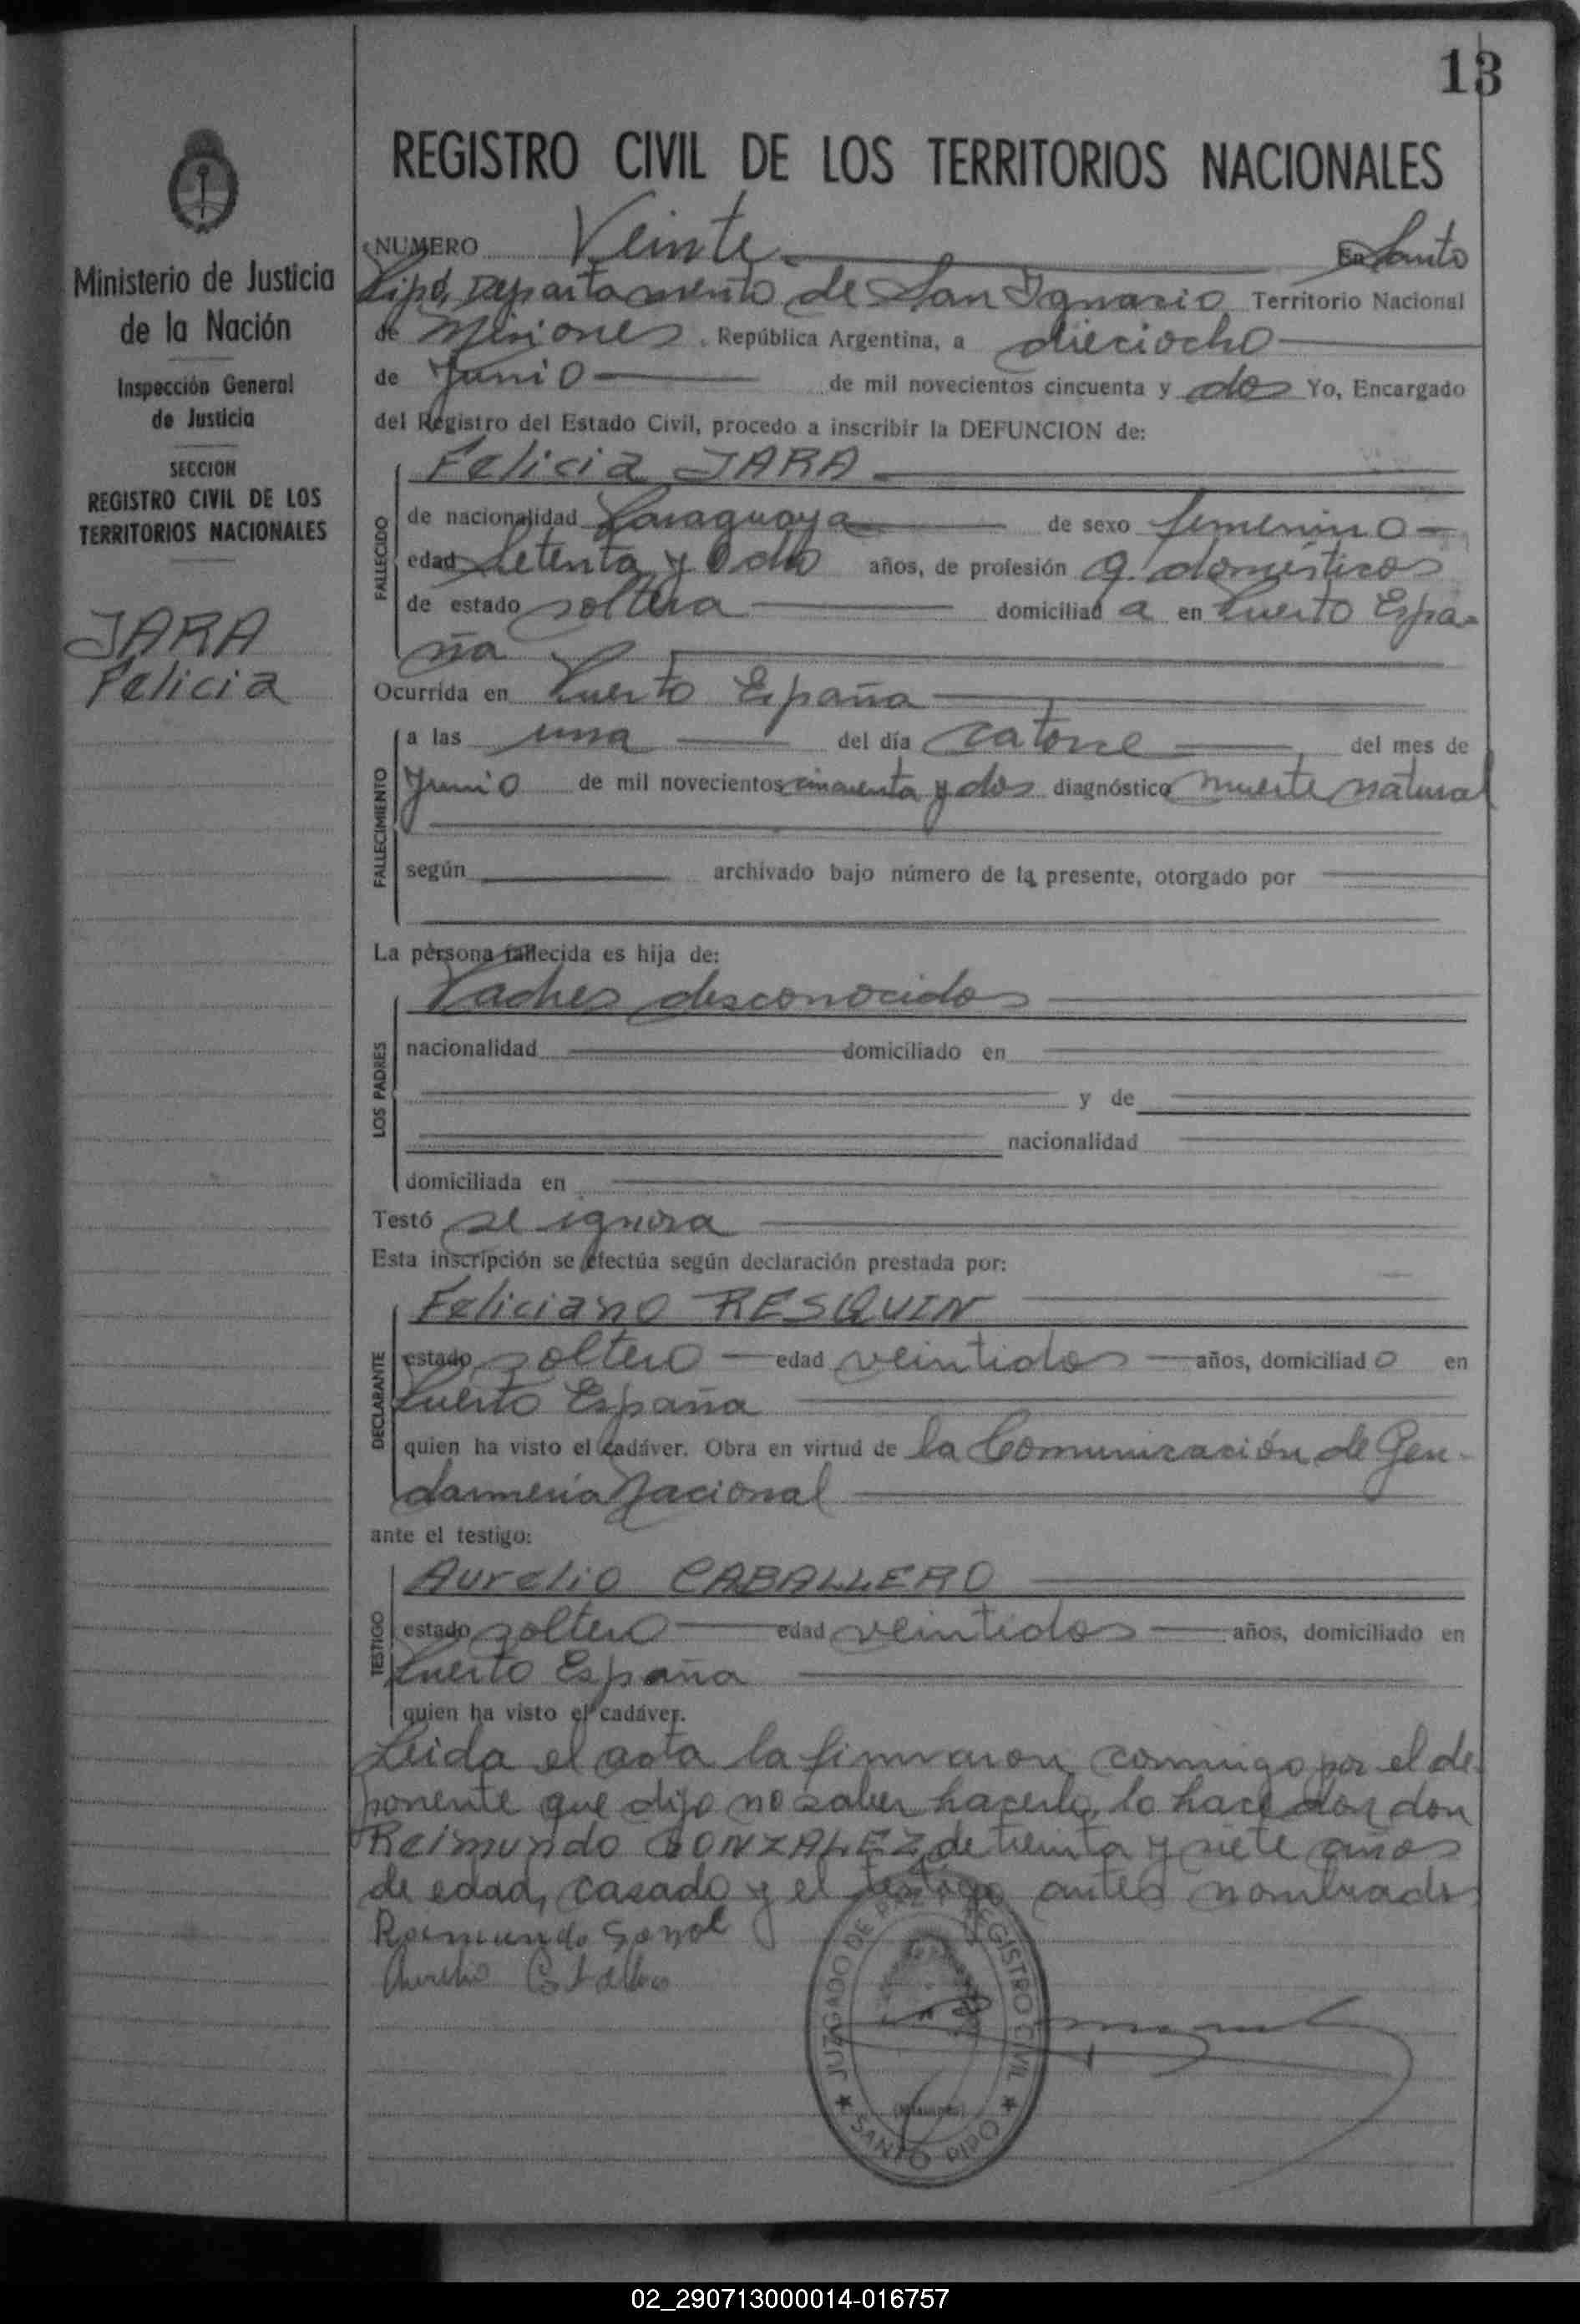 13
REGISTRO CIVIL DE LOS TERRITORIOS NACIONALES
Ministerio de Justicia
de la Nación
Inspección General
de Justicia
SECCION
REGISTRO CIVIL DE LOS
TERRITORIOS NACIONALES
JARA
Felicia
NUMERO Veinte En Santo
Pipó, Departamento de San Ignacio Territorio Nacional
de Misiones, República Argentina, a dieciocho
de Junio de mil novecientos cincuenta y dos Yo, Encargado
del Registro del Estado Civil, procedo a inscribir la DEFUNCION de:
FALLECIDO
Felicia JARA
de nacionalidad Paraguaya de sexo femenino
edad setenta y ocho años, de profesión q. domésticos
de estado soltera domiciliada en Puerto Espa-
ña
Ocurrida en Puerto España
FALLECIMIENTO
a las una del día catorce del mes de
Junio de mil novecientos cincuenta y dos diagnóstico muerte natural
según archivado bajo número de la presente, otorgado por
La persona fallecida es hija de:
LOS PADRES
Padres desconocidos
nacionalidad domiciliado en
y de
nacionalidad
domiciliada en
Testó se ignora
Esta inscripción se efectúa según declaración prestada por:
DECLARANTE
Feliciano RESQUIN
estado soltero edad veintidos años, domiciliado en
Puerto España
quien ha visto el cadáver. Obra en virtud de la Comunicación de Gen-
darmería Nacional
ante el testigo:
TESTIGO
Aurelio CABALLERO
estado soltero edad veintidos años, domiciliado en
Puerto España
quien ha visto el cadáver.
Leida el acta la firmaron conmigo por el de-
ponente que dijo no saber hacerlo, lo hace don don
Reimundo GONZALEZ de treinta y siete años
de edad, casado y el testigo antes nombrado
JUZGADO DE PAZ Y REGISTRO CIVIL
SANTO PIPO
02_290713000014-016757